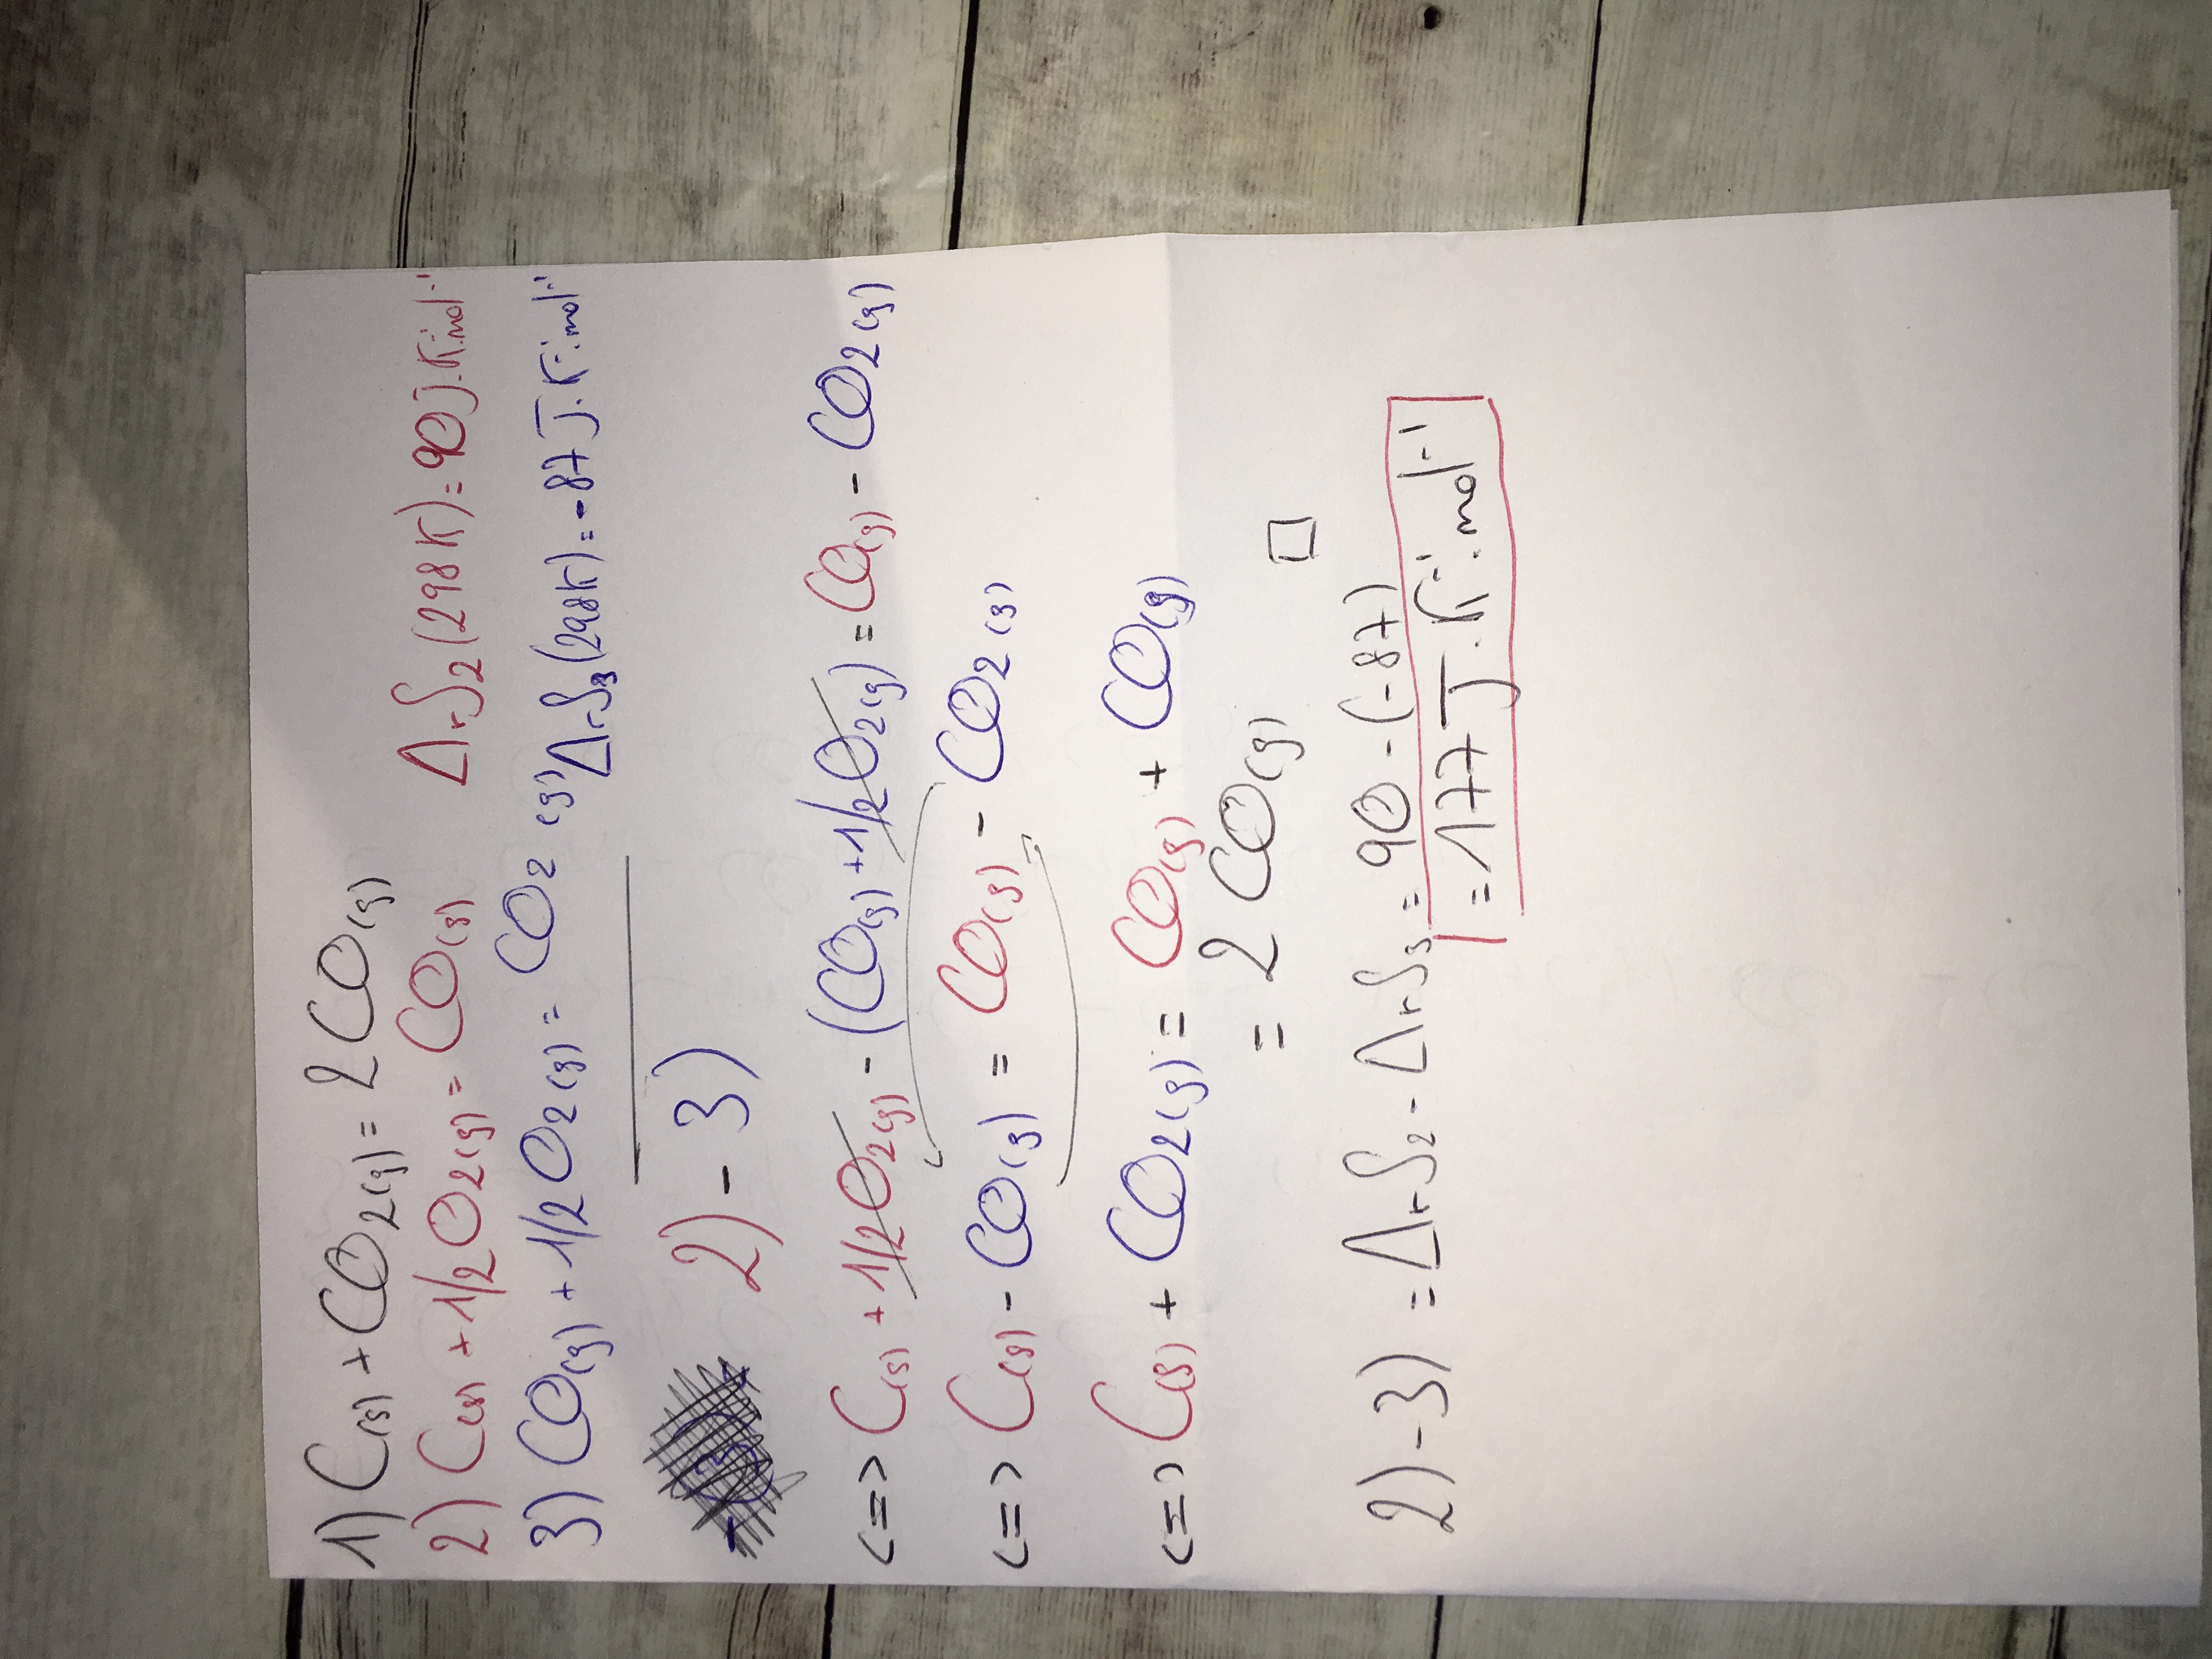 1) C(s) + CO2(g) = 2 CO(g)
2) C(s) + 1/2 O2(g) = CO(g) ΔrS2 (298 K) = 90 J.K-1.mol-1
3) CO(g) + 1/2 O2(g) = CO2 (g) ΔrS3 (298K) = -87 J.K-1.mol-1
2) - 3)
<=> C(s) + 1/2 O2(g) - (CO(g) + 1/2 O2(g)) = CO(g) - CO2(g)
<=> C(s) - CO(g) = CO(g) - CO2(g)
<=> C(s) + CO2(g) = CO(g) + CO(g)
= 2 CO(g) □
2) - 3) = ΔrS2 - ΔrS3 = 90 - (-87)
= 177 J.K-1.mol-1